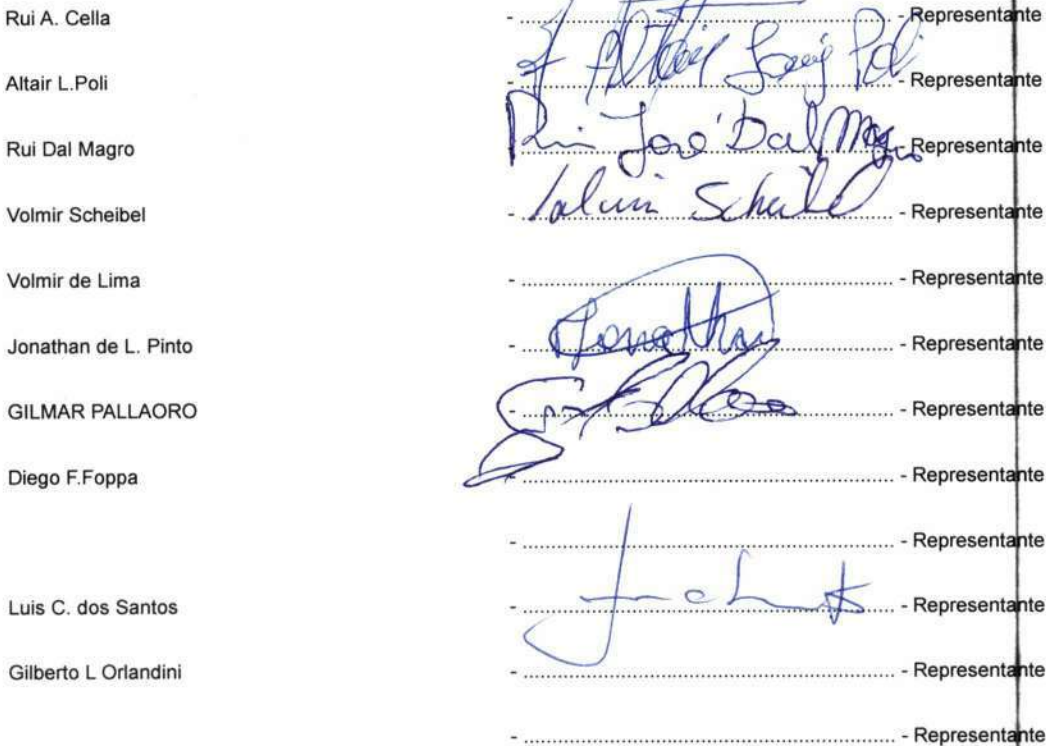 Rui A. Cella - ........ - Representante
Altair L.Poli - Altair Luiz Poli - Representante
Rui Dal Magro - Rui José Dal Magro - Representante
Volmir Scheibel - Volmir Scheibel - Representante
Volmir de Lima - ........ - Representante
Jonathan de L. Pinto - Jonathan - Representante
GILMAR PALLAORO - ........ - Representante
Diego F.Foppa - ........ - Representante
- ........ - Representante
Luis C. dos Santos - ........ - Representante
Gilberto L Orlandini - ........ - Representante
- ........ - Representante